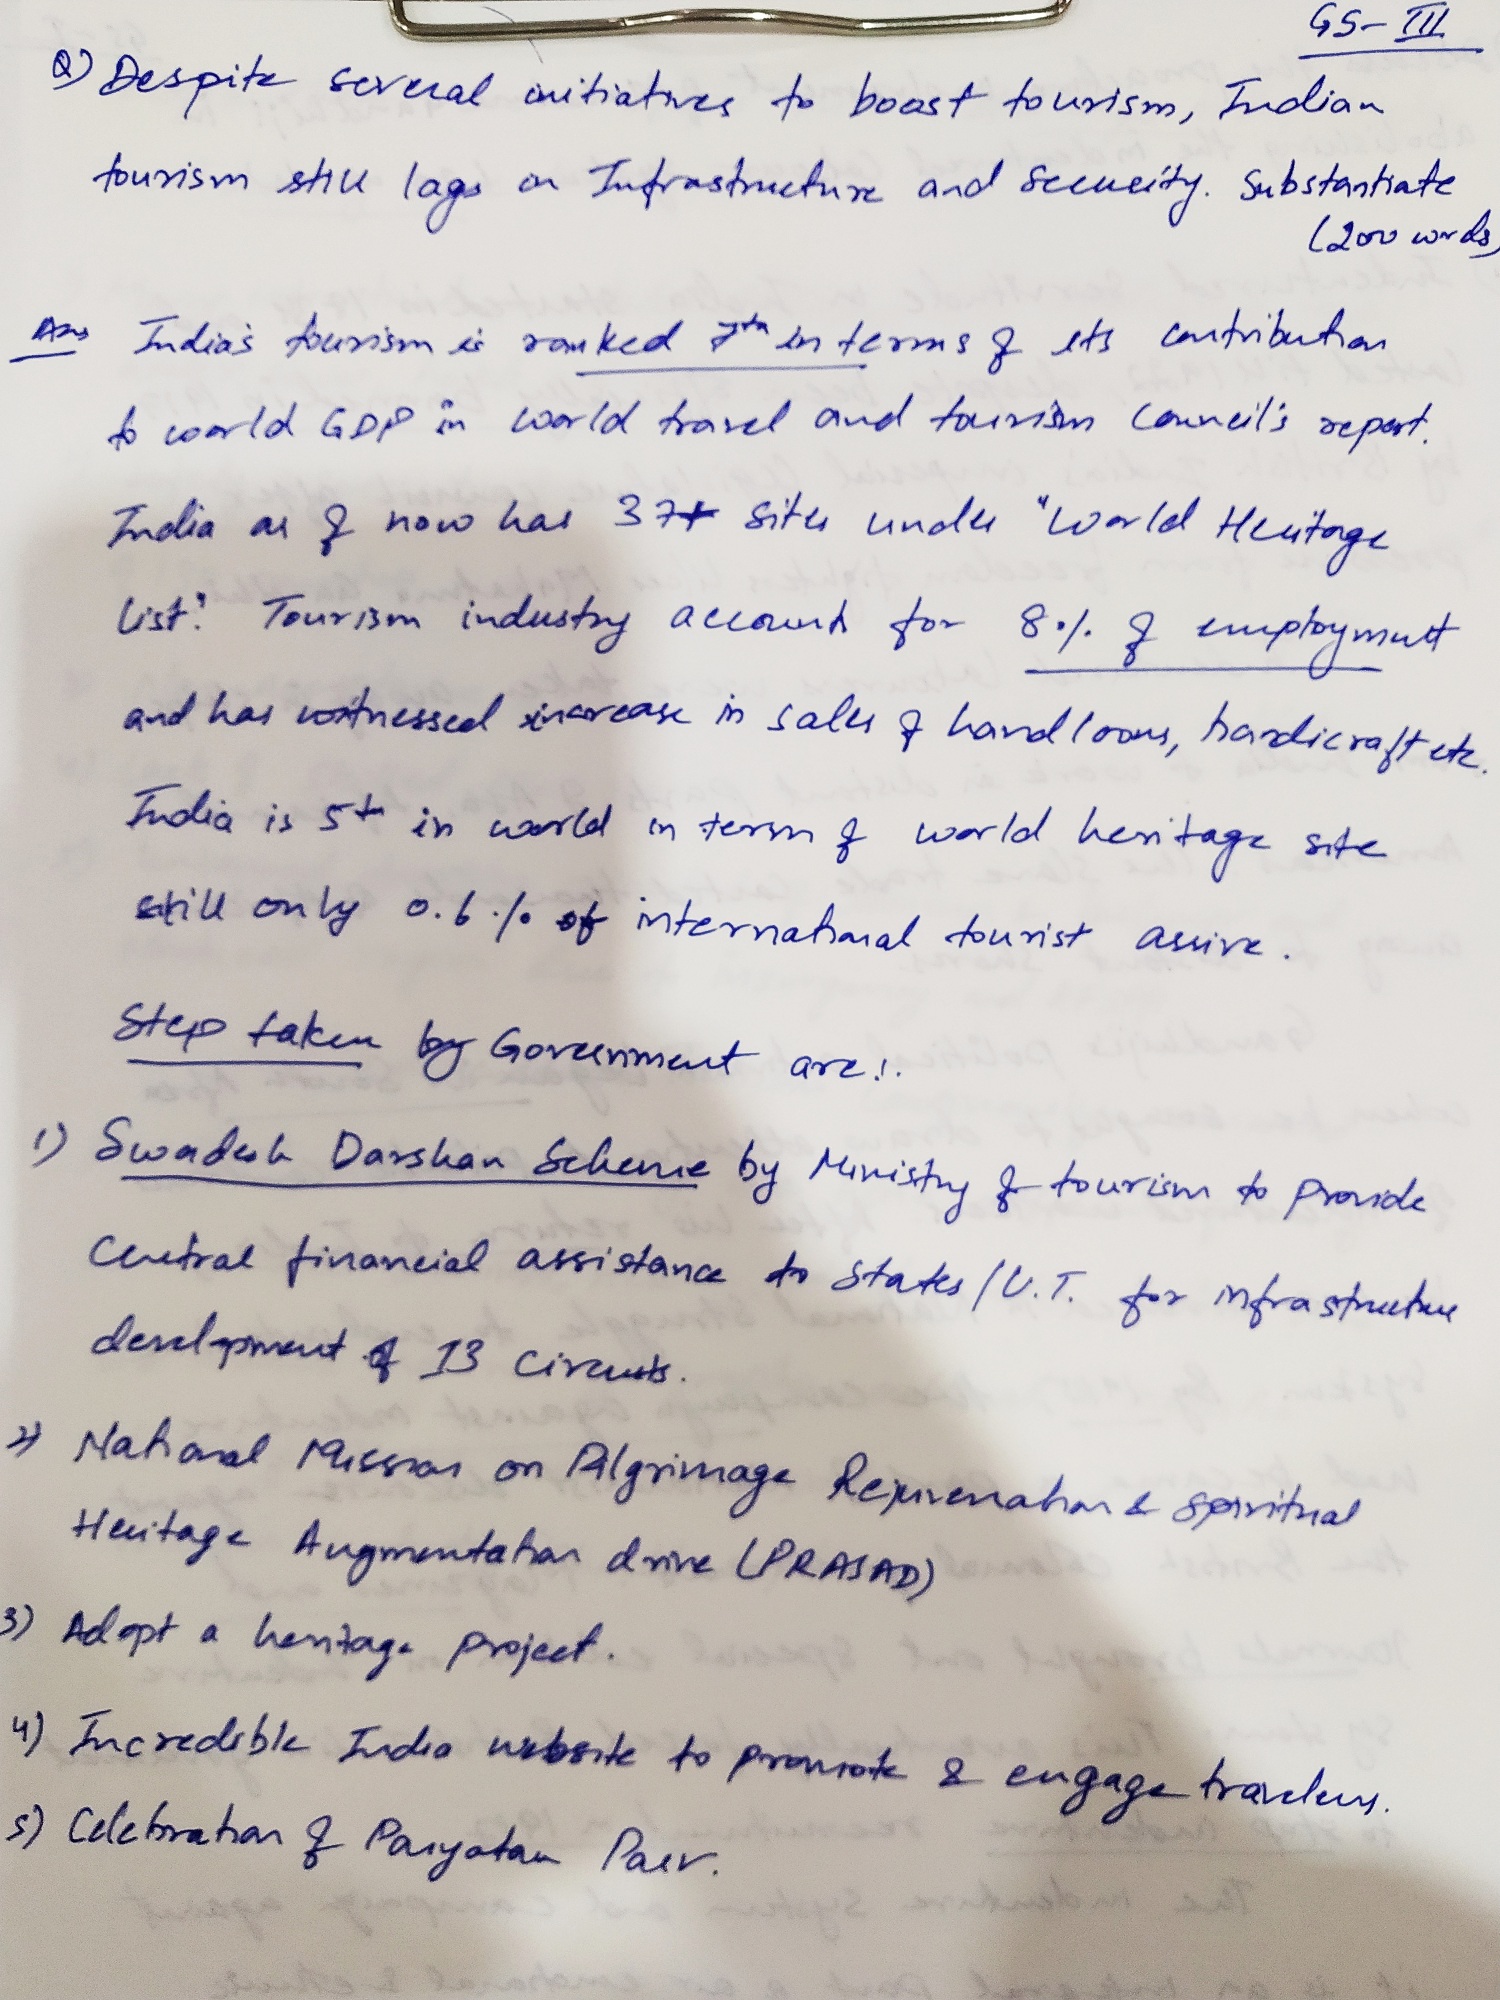 GS-III
Q) Despite several initiatives to boost tourism, Indian
tourism still lags on Infrastructure and security. Substantiate
(200 words)
Ans India's tourism is ranked 7th in terms of its contribution
to world GDP in world travel and tourism Council's report.
India as of now has 37+ sites under "World Heritage
List". Tourism industry accounts for 8% of employment
and has witnessed increase in sales of handlooms, handicraft etc.
India is 5th in world in term of world heritage site
still only 0.6% of international tourist arrive.
Step taken by Government are:.
1) Swadesh Darshan Scheme by Ministry of tourism to provide
Central financial assistance to States/U.T. for infrastructure
development of 13 circuits.
2) National Mission on Pilgrimage Rejuvenation & Spiritual
Heritage Augmentation drive (PRASAD)
3) Adopt a heritage project.
4) Incredible India website to promote & engage travelers.
5) Celebration of Paryatan Parv.